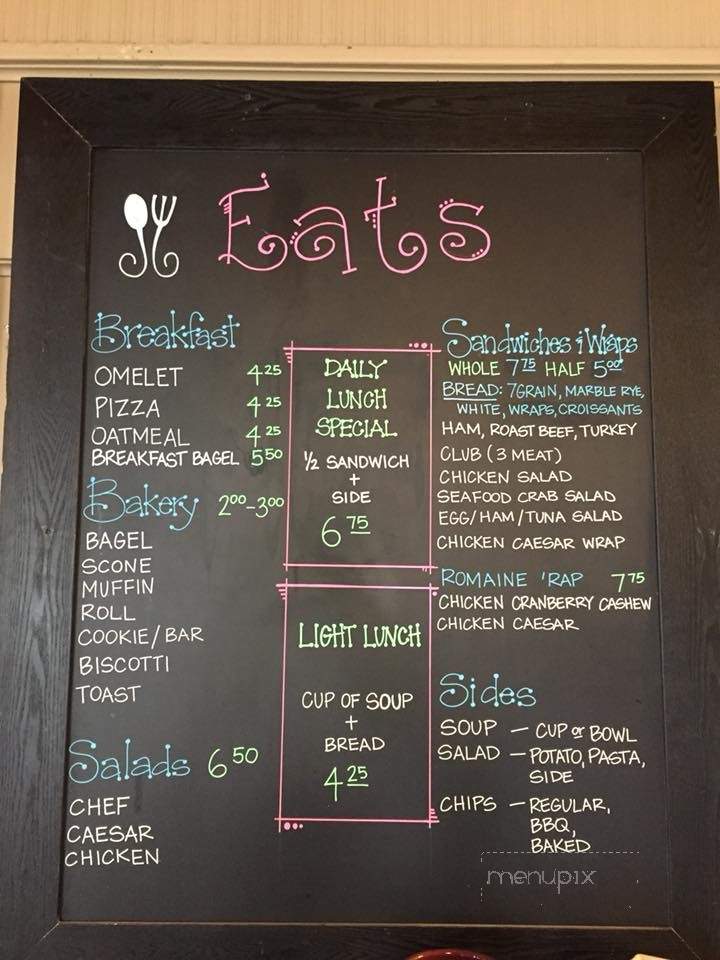 Eats
Breakfast
OMELET 4 25
PIZZA 4 25
OATMEAL 4 25
BREAKFAST BAGEL 5 50
Bakery 2 00 - 3 00
BAGEL
SCONE
MUFFIN
ROLL
COOKIE/BAR
BISCOTTI
TOAST
Salads 6 50
CHEF
CAESAR
CHICKEN
DAILY
LUNCH
SPECIAL
1/2 SANDWICH
+
SIDE
6 75
LIGHT LUNCH
CUP OF SOUP
+
BREAD
4 25
Sandwiches & Wraps
WHOLE 7 75 HALF 5 00
BREAD: 7GRAIN, MARBLE RYE,
WHITE, WRAPS, CROISSANTS
HAM, ROAST BEEF, TURKEY
CLUB (3 MEAT)
CHICKEN SALAD
SEAFOOD CRAB SALAD
EGG/HAM/TUNA SALAD
CHICKEN CAESAR WRAP
ROMAINE 'RAP 7 75
CHICKEN CRANBERRY CASHEW
CHICKEN CAESAR
Sides
SOUP - CUP or BOWL
SALAD - POTATO, PASTA,
SIDE
CHIPS - REGULAR,
BBQ,
BAKED
menupix